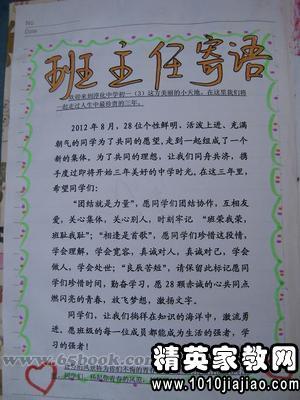 No
Date
班主任寄语
欢迎来到淳化中学初一（3）这方美丽的小天地。在这里我们将
一起走过人生中最珍贵的三年。
2012年8月，28位个性鲜明、活泼上进、充满
朝气的同学为了共同的愿望，走到一起组成了一个
新的集体。为了共同的理想，让我们同舟共济，携
手度过即将开始三年美好的中学时光，在这三年里，
希望同学们：
“团结就是力量”，愿同学们团结协作，互相友
爱，关心集体，关心别人，时刻牢记 “班荣我荣，
班耻我耻”；“相逢是首歌”，愿同学们珍惜这段情，
学会理解，学会宽容，真诚对人，真诚对己，学会
做人，学会处世；“良辰苦短”，请保留此标记愿同学
们珍惜时间，勤奋学习，愿28颗赤诚的心共同点
燃闪亮的青春，放飞梦想，激扬文字。
同学们，让我们徜徉在知识的海洋中，激流勇
进。愿班级的每一位成员都能成为生活的强者，学
习的强者！
www.65book.com
精英家教网
www.1010jiajiao.com